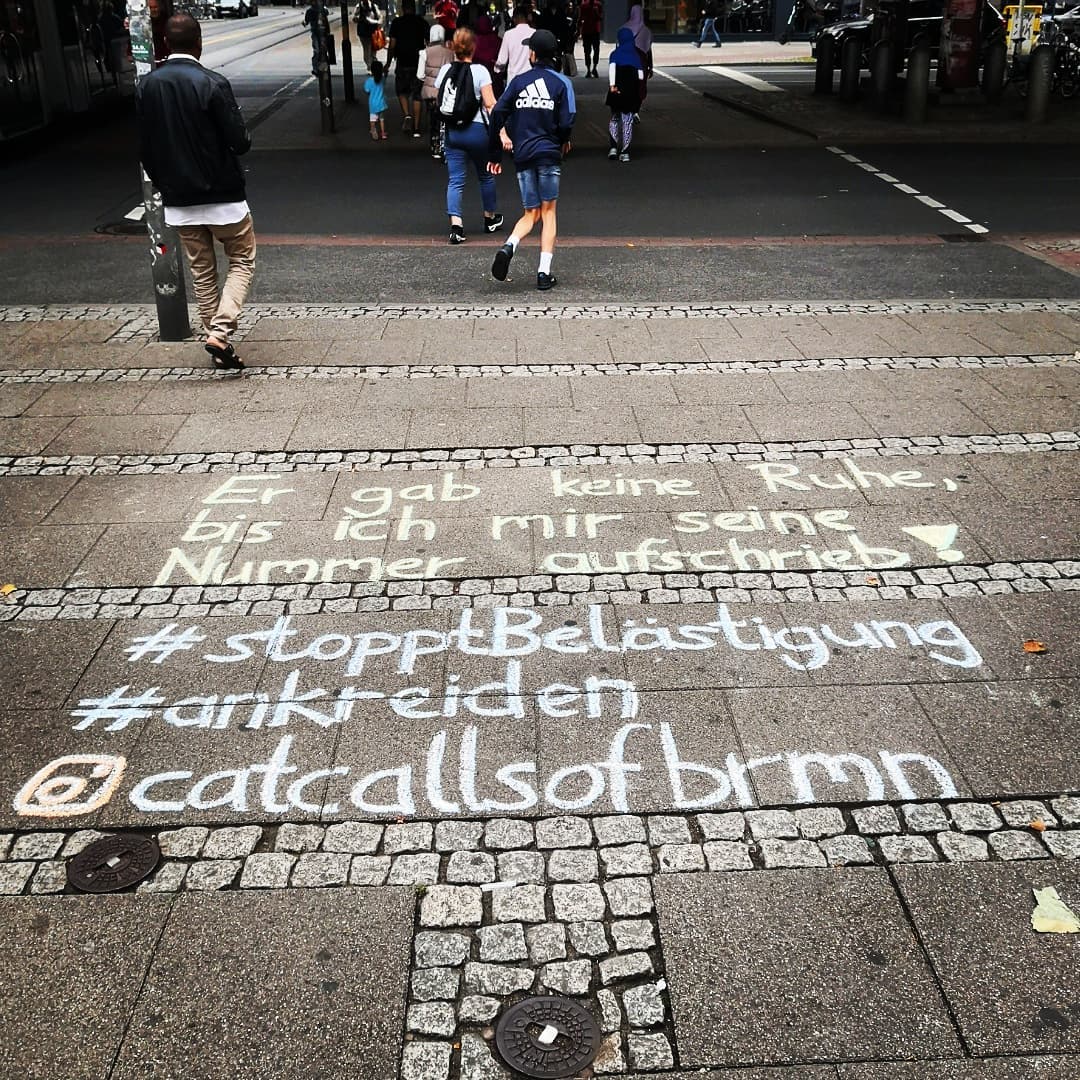 adidas
Er gab keine Ruhe,
bis ich mir seine
Nummer aufschrieb!
#stopptBelästigung
#ankreiden
catcallsofbrmn